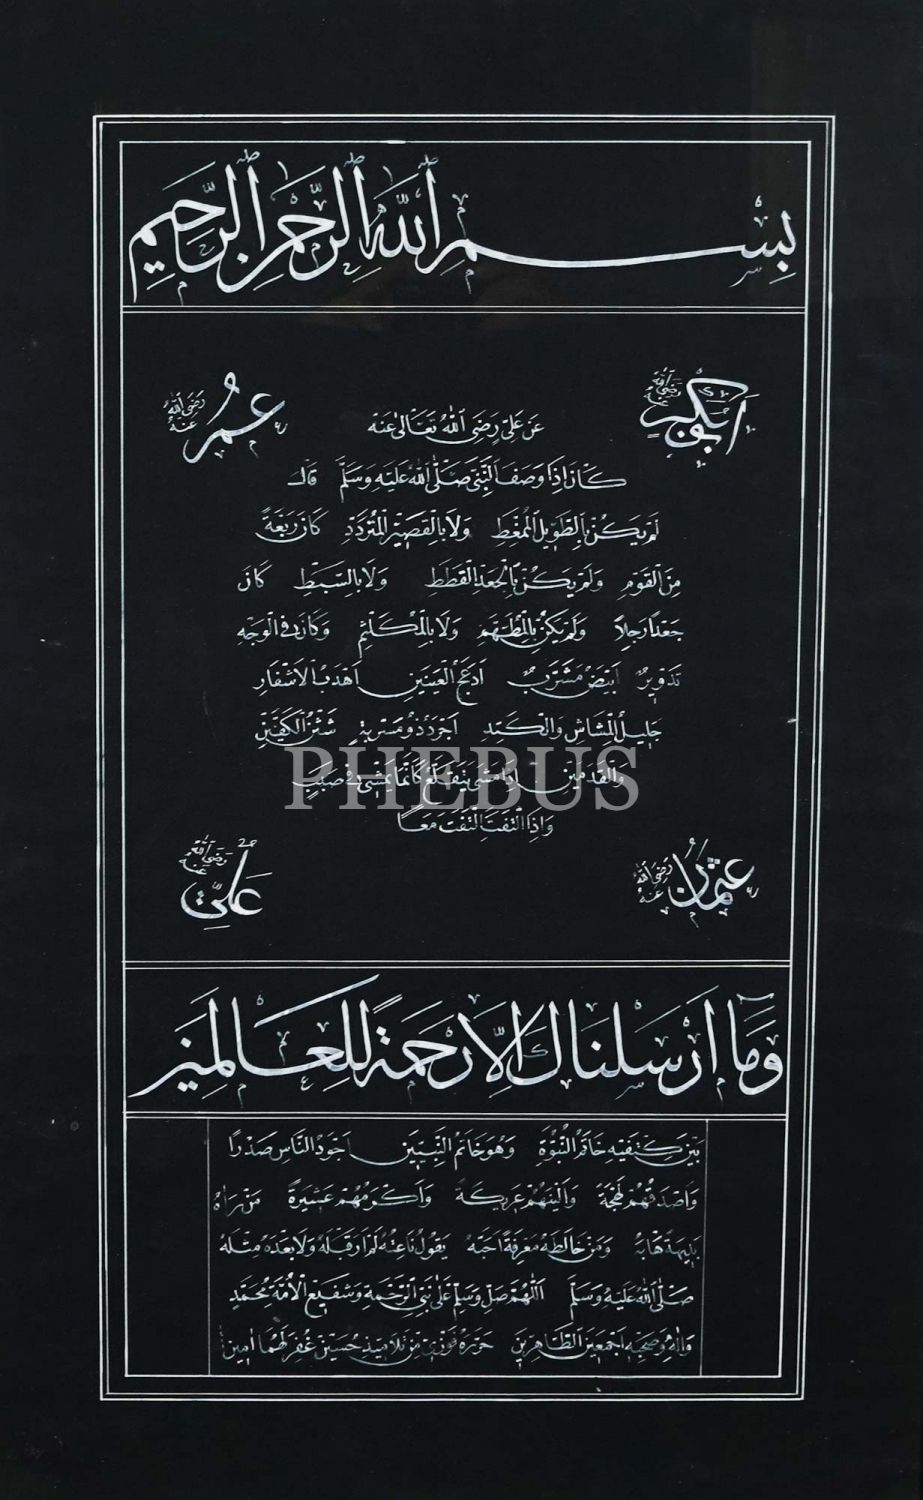 بِسْمِ ٱللّٰهِ ٱلرَّحْمٰنِ ٱلرَّحِيمِ
ابو بكر رضى الله عنه
عمر رضى الله عنه
عن على رضى الله تعالى عنه
كان اذا وصف النبى صلى الله عليه وسلم قال
لم يكن بالطويل الممغط ولا بالقصير المتردد كان ربعة
من القوم ولم يكن بالجعد القطط ولا بالسبط كان
جعدا رجلا ولم يكن بالمطهم ولا بالمكلثم وكان فى الوجه
تدوير ابيض مشرب ادعج العينين اهدب الاشفار
جليل المشاش والكتد اجرد ذو مسربة شثن الكفين
والقدمين اذا مشى يتقلع كانما يمشى فى صبب
واذا التفت التفت معا
PHEBUS
عثمان رضى الله عنه
على رضى الله عنه
وما ارسلناك الا رحمة للعالمين
بين كتفيه خاتم النبوة وهو خاتم النبيين اجود الناس صدرا
واصدقهم لهجة والينهم عريكة واكرمهم عشيرة من راه
بديهة هابه ومن خالطه معرفة احبه يقول ناعته لم ار قبله ولا بعده مثله
صلى الله عليه وسلم اللهم صل وسلم على نبى الرحمة وشفيع الامة محمد
واله وصحبه اجمعين الطاهرين حرره فوزى من تلاميذ حسين غفر لهما امين